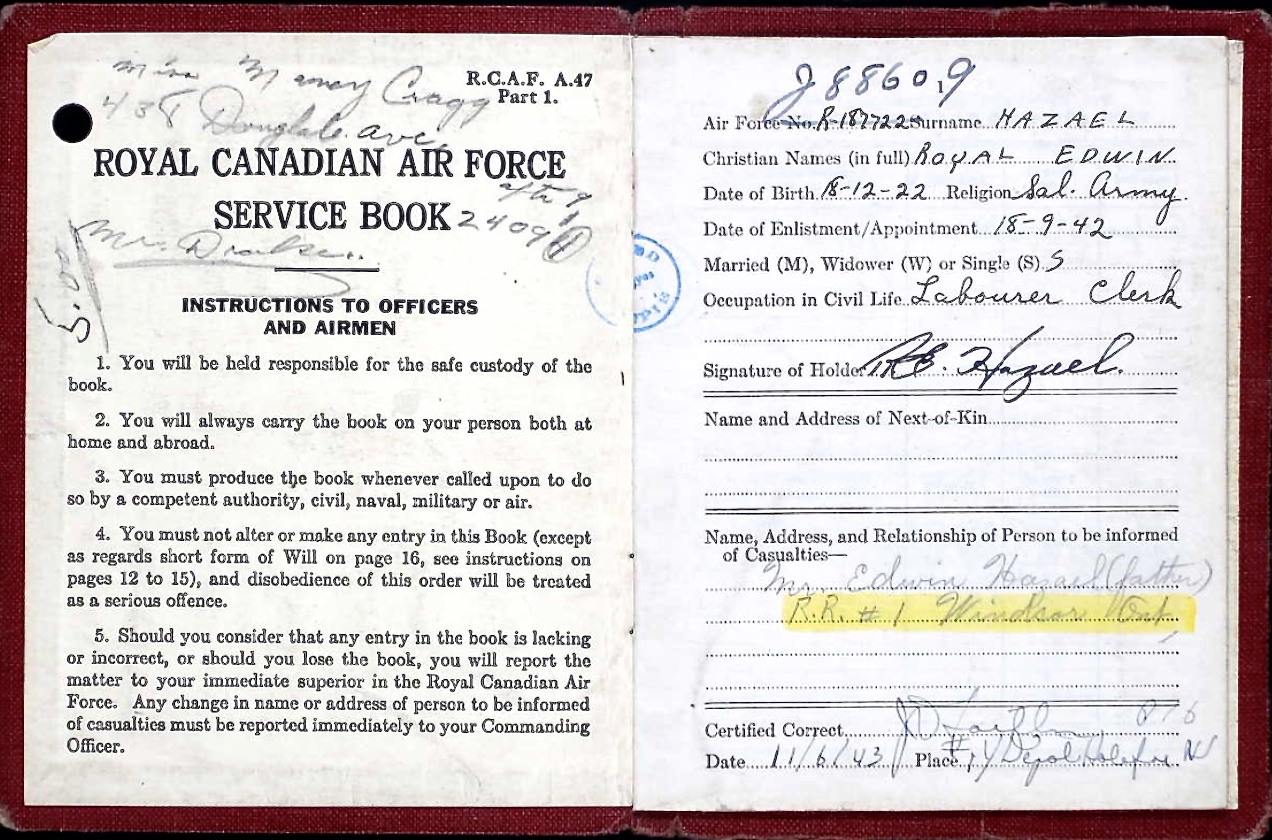 Miss Nancy Cragg
R.C.A.F. A.47
Part 1.
438 Ave,
ROYAL CANADIAN AIR FORCE
SERVICE BOOK
after 9
24091
Mr.
5.00
INSTRUCTIONS TO OFFICERS
AND AIRMEN
1. You will be held responsible for the safe custody of the
book.
2. You will always carry the book on your person both at
home and abroad.
3. You must produce the book whenever called upon to do
so by a competent authority, civil, naval, military or air.
4. You must not alter or make any entry in this Book (except
as regards short form of Will on page 16, see instructions on
pages 12 to 15), and disobedience of this order will be treated
as a serious offence.
5. Should you consider that any entry in the book is lacking
or incorrect, or should you lose the book, you will report the
matter to your immediate superior in the Royal Canadian Air
Force. Any change in name or address of person to be informed
of casualties must be reported immediately to your Commanding
Officer.
J88609
Air Force No. R-187722 Surname HAZAEL
Christian Names (in full) ROYAL EDWIN
Date of Birth 18-12-22 Religion Sal. Army
Date of Enlistment/Appointment 18-9-42
Married (M), Widower (W) or Single (S) S
Occupation in Civil Life Labourer Clerk
Signature of Holder R.E. Hazael.
Name and Address of Next-of-Kin
Name, Address, and Relationship of Person to be informed
of Casualties—
Mr. Edwin Hazael (father)
R.R. # 1 Windsor Ont,
Certified Correct
Date 11/6/43 Place #1 Y Depot Halifax NS